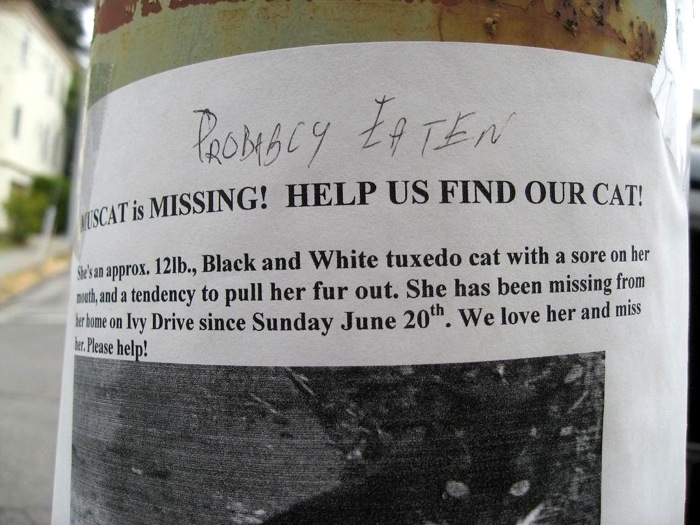 PROBABLY EATEN
MUSCAT is MISSING! HELP US FIND OUR CAT!
She's an approx. 12lb., Black and White tuxedo cat with a sore on her
mouth, and a tendency to pull her fur out. She has been missing from
her home on Ivy Drive since Sunday June 20th. We love her and miss
her. Please help!